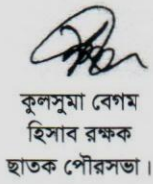 কুলসুমা বেগম
হিসাব রক্ষক
ছাতক পৌরসভা।